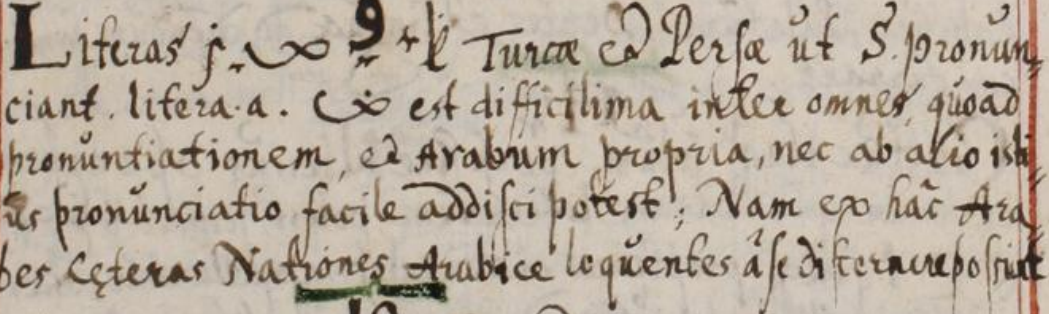 Literas Turcæ et Persæ ut S. pronun,
ciant. litera.a. est difficilima inter omnes, quoad
pronuntiationem, et Arabum propria, nec ab alio isti,
ús pronunciatio facile addisci potest; Nam ex hac Ara,
bes cęteras Nationes Arabice loquentes â se discernere possunt